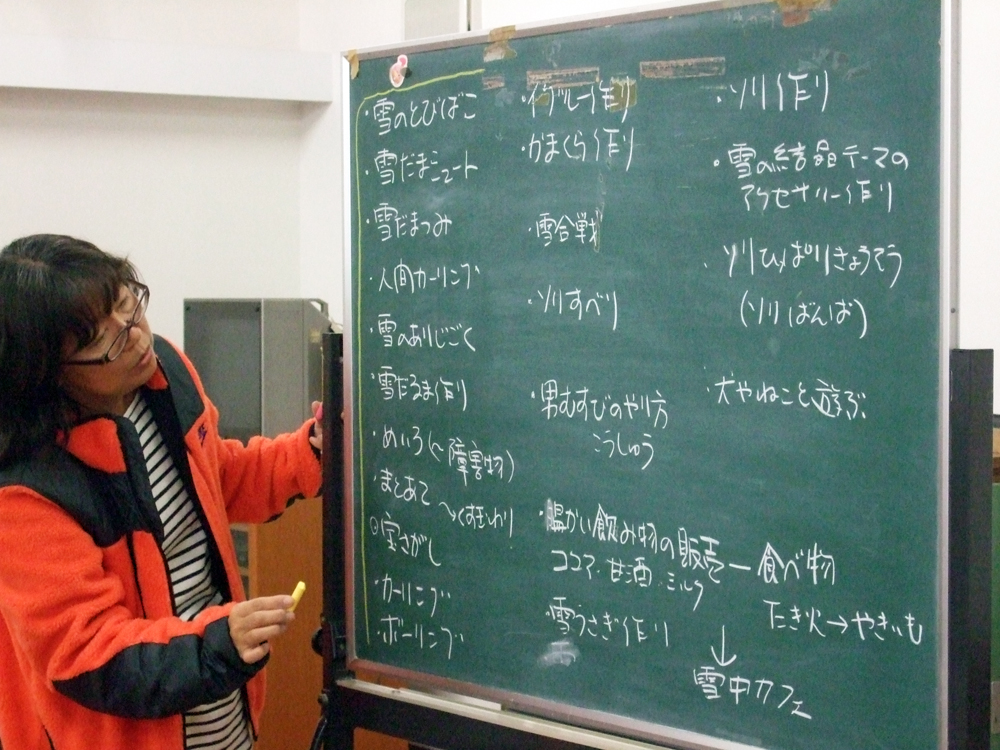 ・雪のとびばこ
・雪だまシュート
・雪だまつみ
・人間カーリング
・雪のありじごく
・雪だるま作り
・めいろ(〜障害物)
・まとあて
↳くすだまわり
◎宝さがし
・カーリング
・ボーリング
・イグルー作り
・かまくら作り
・雪合戦
・ソリすべり
・男むすびのやり方
こうしゅう
・温かい飲み物の販売ー食べ物
ココア・甘酒・ミルク
たき火→やきいも
↓
雪中カフェ
・雪うさぎ作り
・ソリ作り
・雪の結晶テーマの
アクセサリー作り
・ソリひっぱりきょうそう
(ソリばんば)
・犬やねこと遊ぶ